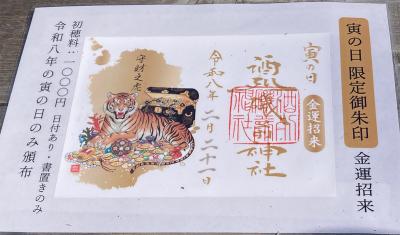 寅の日 限定御朱印 金運招来
寅の日
金運招来
酒列磯前神社
令和八年 二月二十一日
守財之虎
初穂料:一〇〇〇円 日付あり・書置きのみ
令和八年の寅の日のみ頒布